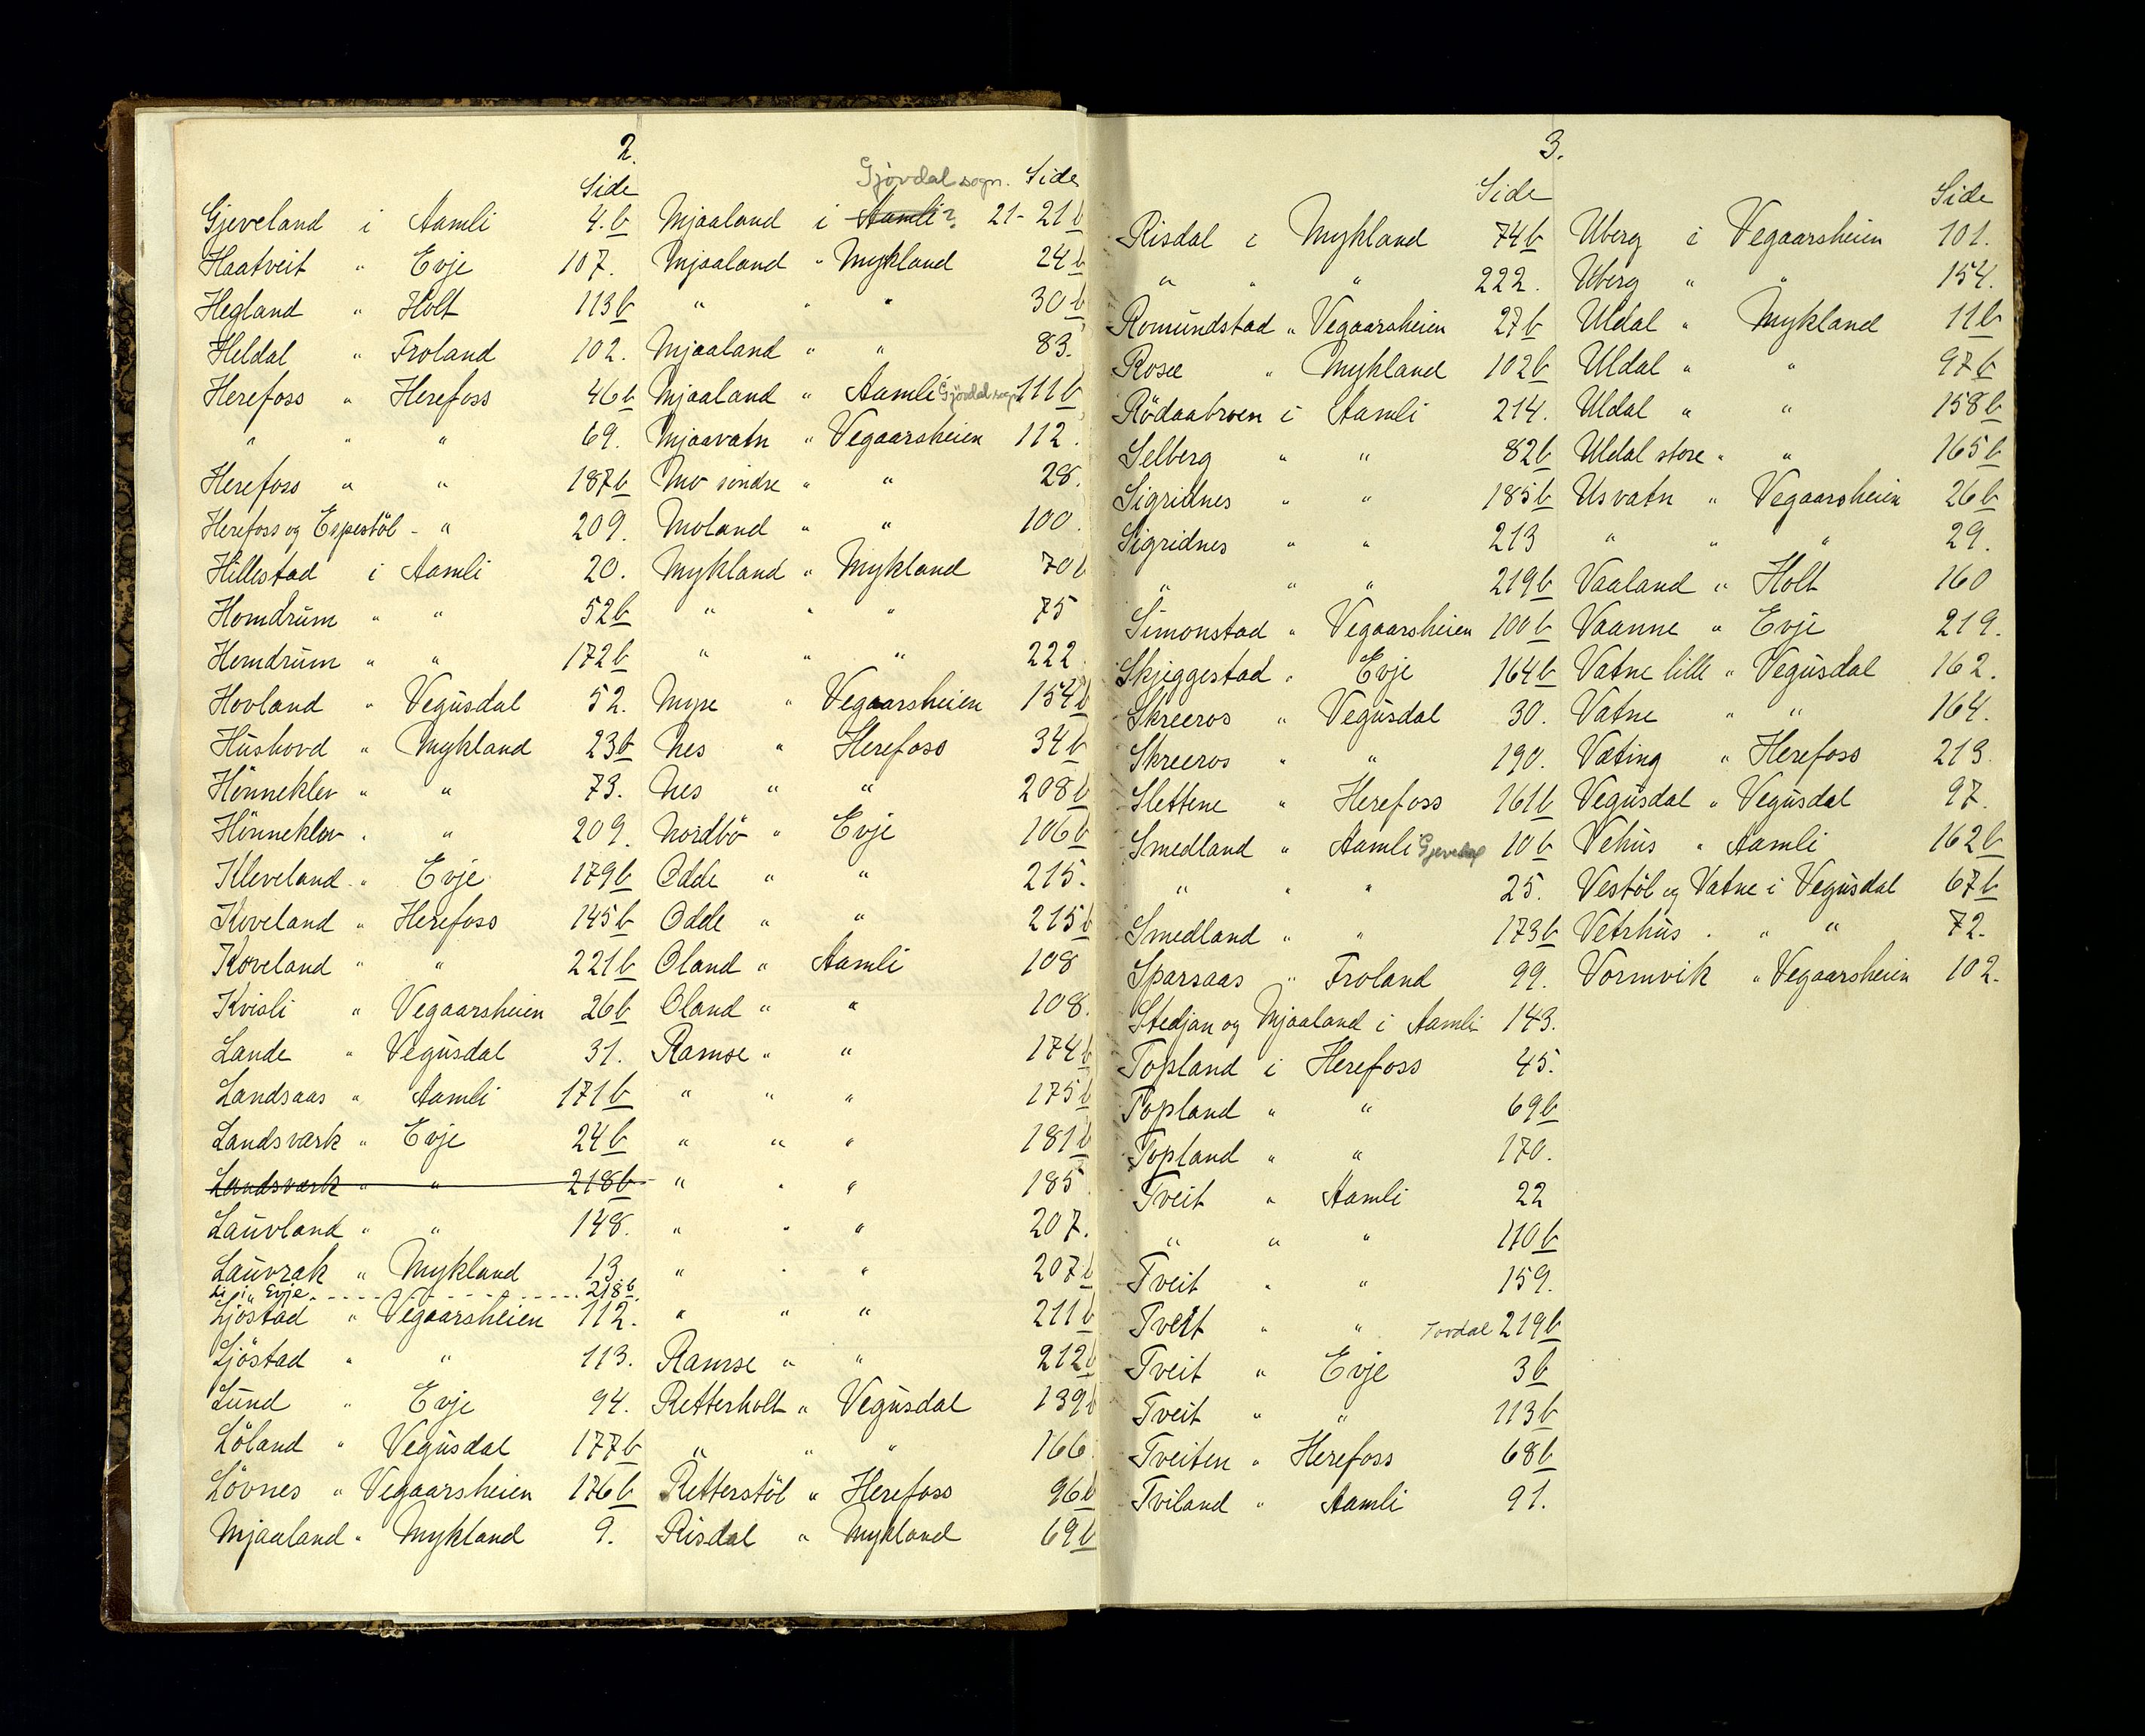 2.
Side
Gjeveland i Aamli 4.b
Haatveit " Evje 107.
Hegland " Holt 113b
Heldal " Froland 102.
Herefoss " Herefoss 46b
" " " 69.
Herefoss " " 187b
Herefoss og Espestöl - " 209.
Hillestad i Aamli 20.
Homdrum " " 52b
Homdrum " " 172b
Hovland " Vegusdal 52.
Hushovd " Mykland 23b
Hönneklev " " 73.
Hönneklev " " 209.
Kleveland " Evje 179b
Koveland " Herefoss 145b
Koveland " " 221b
Kvisli " Vegaarsheien 26b
Lande " Vegusdal 31.
Landsaas " Aamli 171b
Landsværk " Evje 24b
Landsværk " " 218b
Lauvland " " 148.
Lauvrak " Mykland 13
Li i " Evje 218b.
Ljöstad " Vegaarsheien 112.
Ljöstad " " 113.
Lund " Evje 94.
Löland " Vegusdal 177b
Lövnes " Vegaarsheien 176b
Mjaaland " Mykland 9.
Gjövdal sogn. Side
Mjaaland i Aamli? 21-21b
Mjaaland " Mykland 24b
" " " 30b
Mjaaland " " 83.
Mjaaland " Aamli Gjövdal sogn 111b
Mjaavatn " Vegaarsheien 112.
Mo söndre " " 28.
Moland " " 100.
Mykland " Mykland 70b
" " " 75
" " " 222
Myre " Vegaarsheien 154b
Nes " Herefoss 34b
Nes " " 208b
Nordbö " Evje 106b
Odde " " 215.
Odde " " 215b
Oland " Aamli 108
Oland " " 108.
Ramse " " 174b
" " " 175b
" " " 181b
" " " 185
" " " 207.
" " " 207b
" " " 211b
Ramse " " 212b
Retterholt " Vegusdal 139b
" " " 166
Retterstöl " Herefoss 96b
Risdal " Mykland 69b
3.
Side
Risdal i Mykland 74b
" " " 222.
Romundstad " Vegaarsheien 27b
Rosee " Mykland 102b
Rödaabroen i Aamli 214.
Selberg " " 82b
Sigridnes " " 185b
Sigridnes " " 213
" " " 219b
Simonstad " Vegaarsheien 100b
Skjeggestad " Evje 164b
Skreeros " Vegusdal 30.
Skreeros " " 190.
Slettene " Herefoss 161b
Smedland " Aamli Gjøvdal 10b
" " " 25.
Smedland " " 173b
Sparsaas " Froland 99.
Stedjan og Mjaaland i Aamli 143.
Topland i Herefoss 45.
Topland " " 69b
Topland " " 170.
Tveit " Aamli 22
" " " 110b
Tveit " " 159.
Tveit " " Tovdal 219b
Tveit " Evje 3b
Tveit " " 113b
Tveiten " Herefoss 68b
Tviland " Aamli 91.
Side
Uberg i Vegaarsheien 101.
Uberg " " 154.
Uldal " Mykland 11b
Uldal " " 97b
Uldal " " 158b
Uldal store " " 165b
Usvatn " Vegaarsheien 26b
" " " 29.
Vaaland " Holt 160
Vaanne " Evje 219.
Vatne lille " Vegusdal 162.
Vatne " " 164.
Væting " Herefoss 213.
Vegusdal " Vegusdal 97.
Vehus " Aamli 162b
Vestöl og Vatne i Vegusdal 67b
Vetrhus " " " 72.
Vormvik " Vegaarsheien 102.